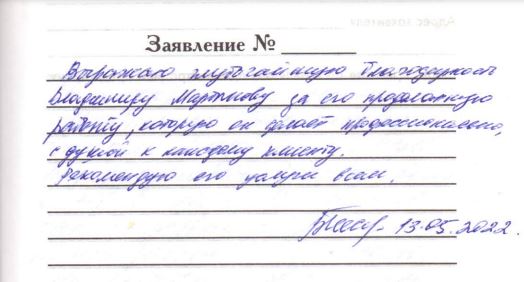 Адрес заявителя
Заявление №
Выражаю глубочайшую благодарность
Владимиру Мартынову за его проделанную
работу, которую он делает профессионально,
с душой к каждому клиенту.
Рекомендую его услуги всем.
13.05.2022.